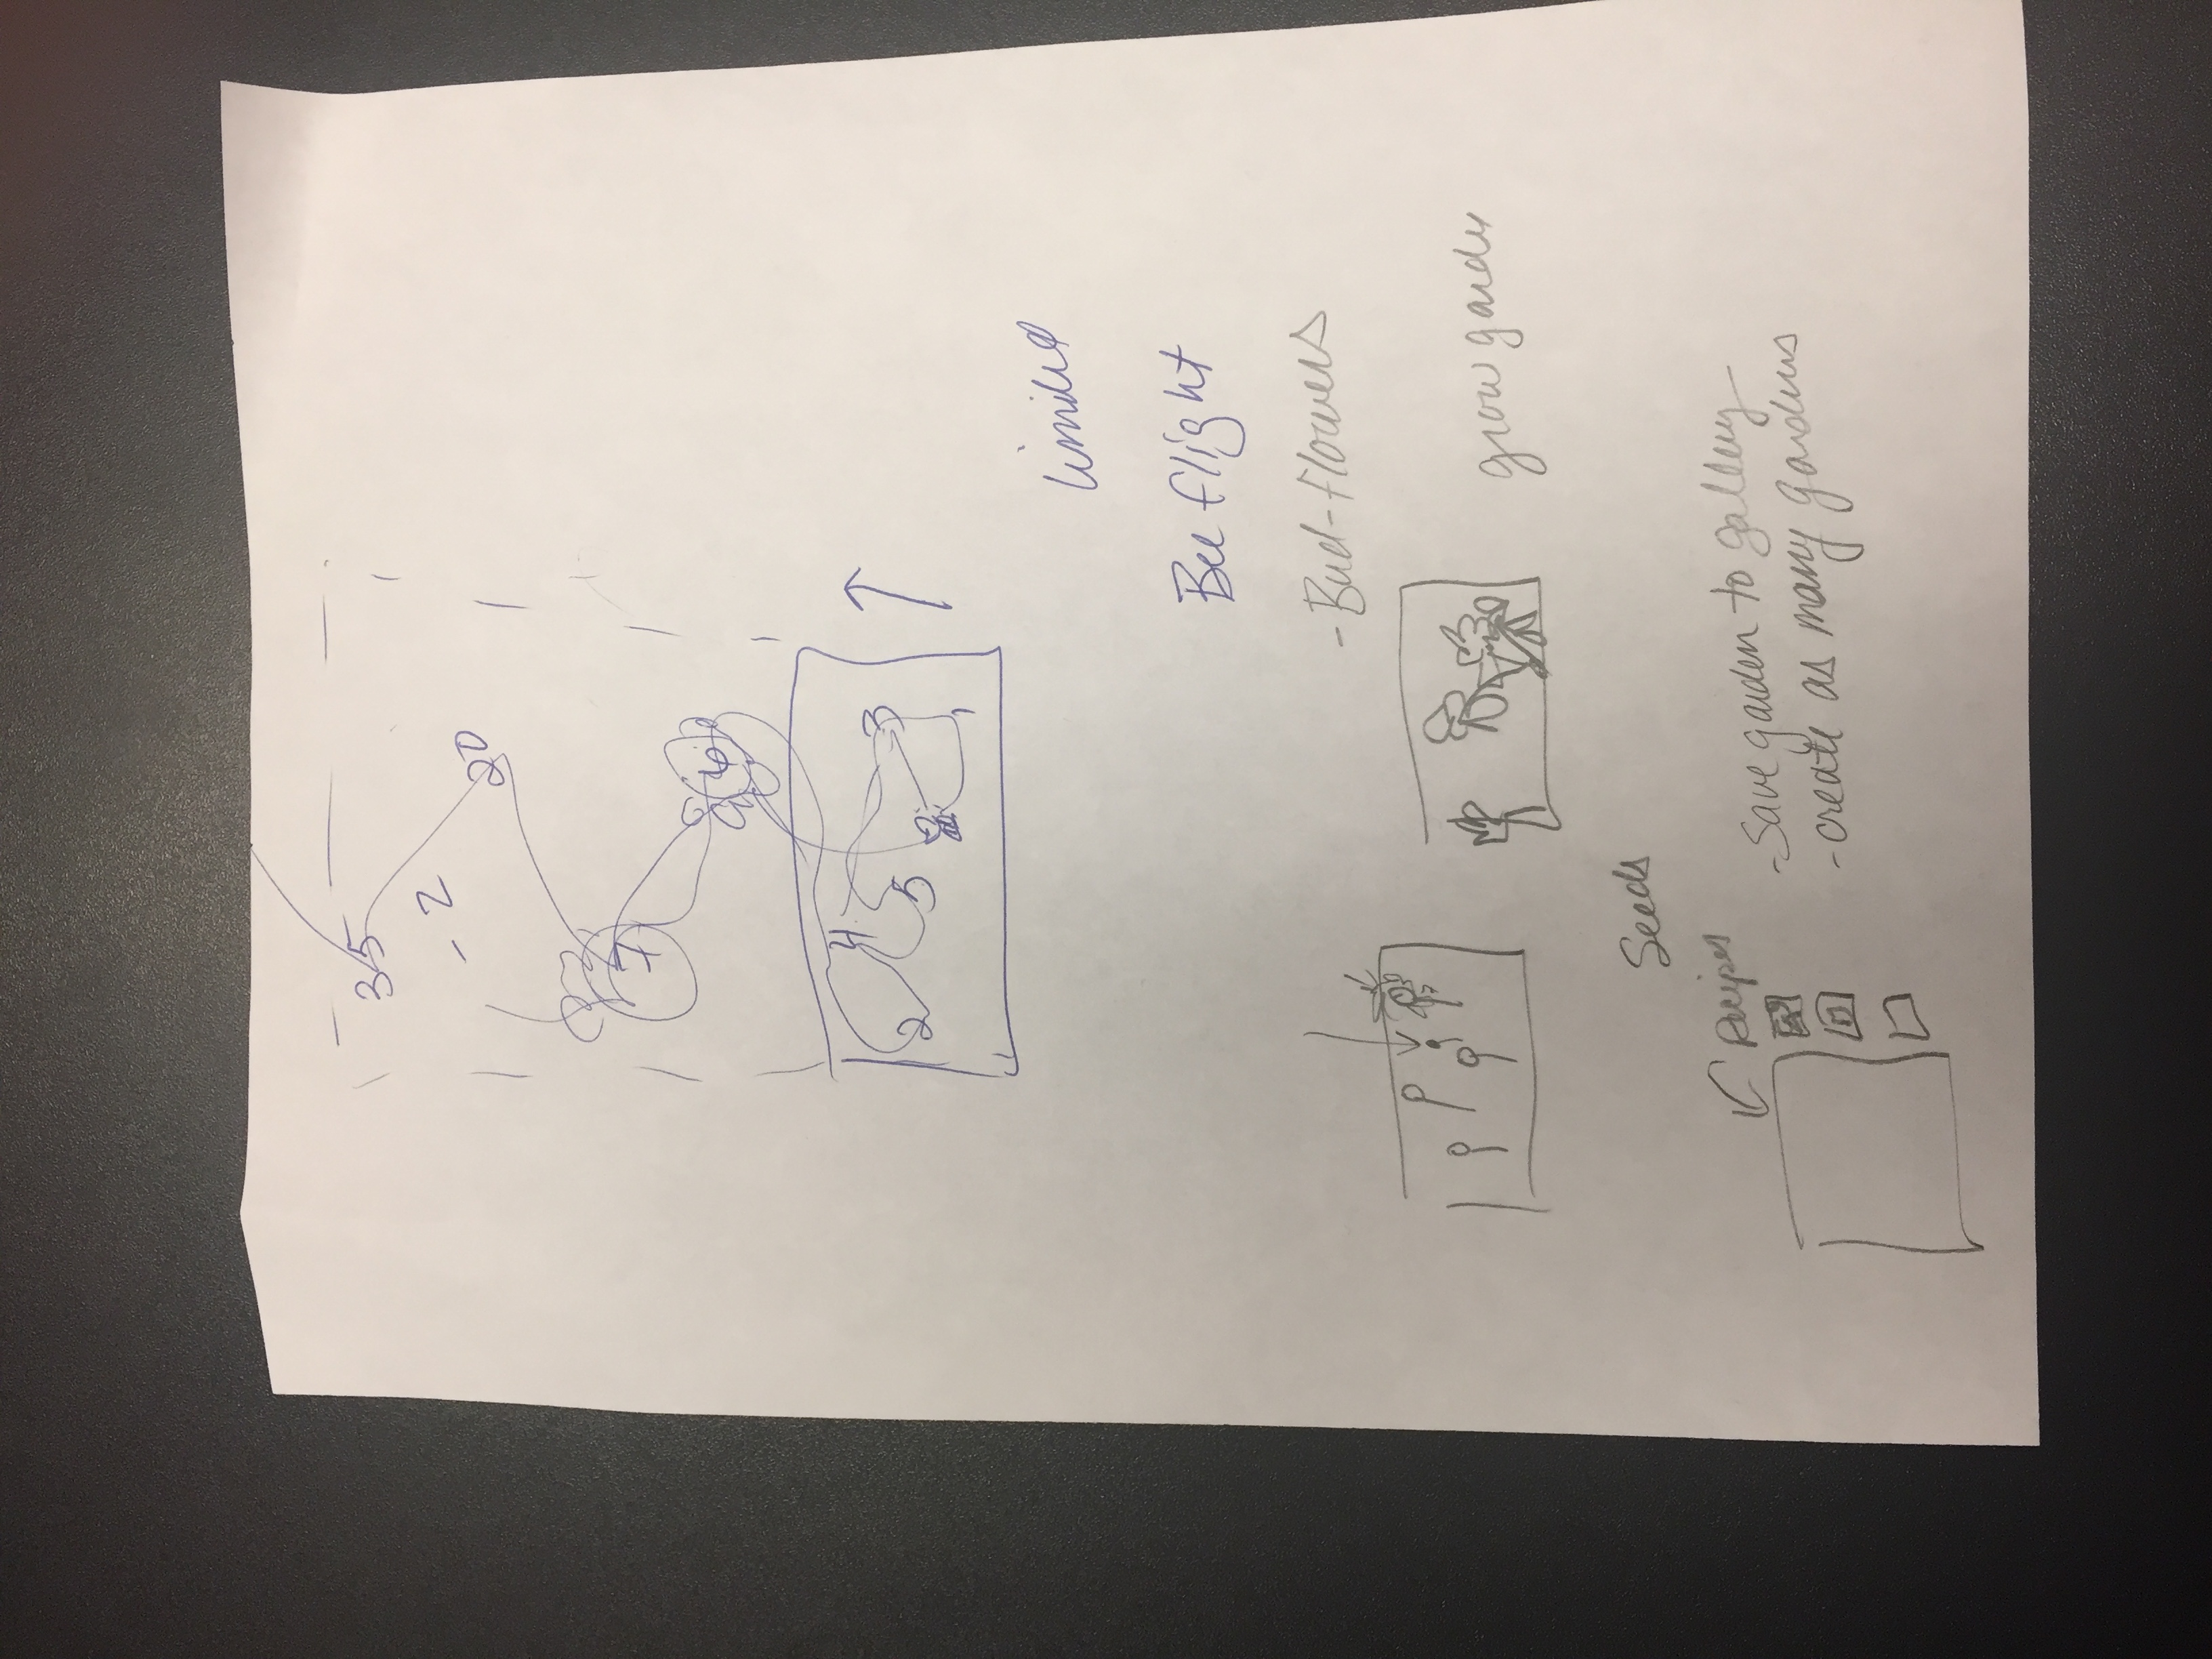 35
- 2
20
7
6
2
4
5
3
1
limited
Bee flight
- Bud-flowers
grow garden
Seeds
- Save garden to gallery
- create as many gardens